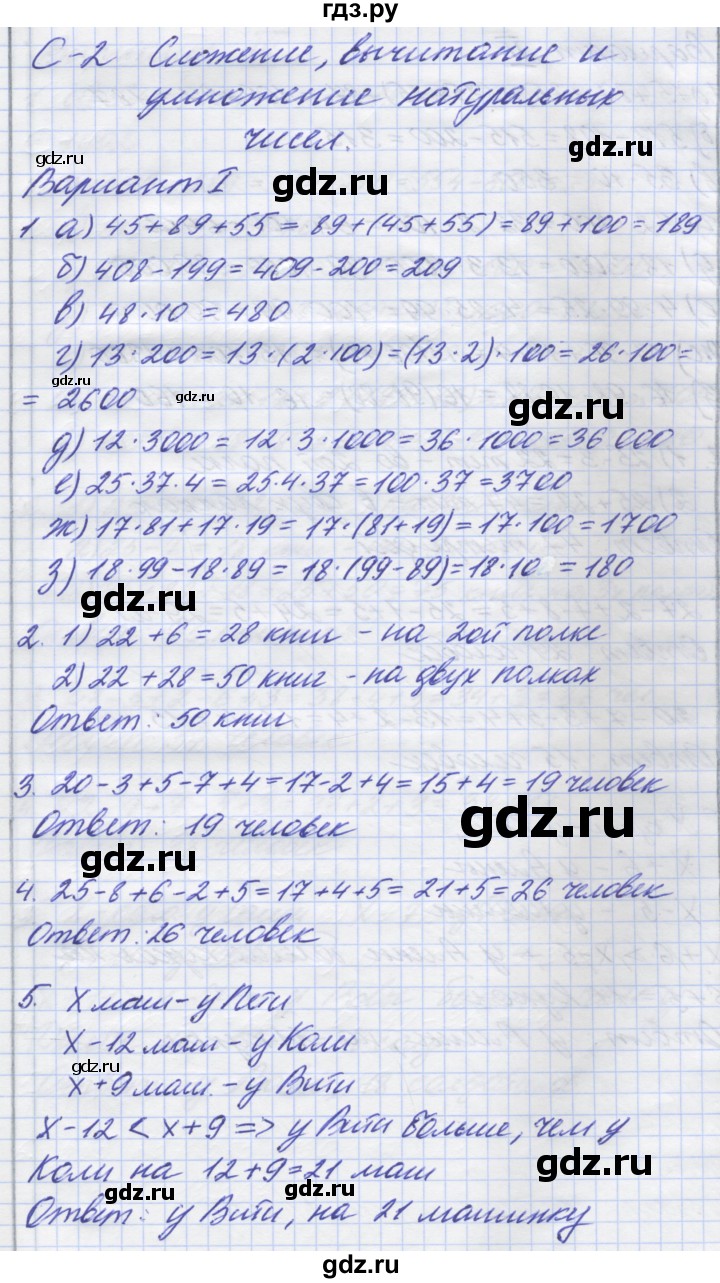 гдз.ру
С-2 Сложение, вычитание и
умножение натуральных
чисел.
gdz.ru
gdz.ru
Вариант I
gdz.ru
1. а) 45+89+55 = 89+(45+55)=89+100=189
б) 408-199=409-200=209
в) 48·10 = 480
г) 13·200=13·(2·100)=(13·2)·100=26·100=
gdz.ru
= 2600
gdz.ru
gdz.ru
д) 12·3000 = 12·3·1000=36·1000=36 000
е) 25·37·4=25·4·37=100·37=3700
ж) 17·81+17·19=17·(81+19)=17·100=1700
з) 18·99-18·89 = 18·(99-89)=18·10 = 180
gdz.ru
2. 1) 22+6=28 книг - на 2ой полке
2) 22+28=50 книг - на двух полках
Ответ: 50 книг
3. 20-3+5-7+4=17-2+4=15+4=19 человек
Ответ: 19 человек
gdz.ru
gdz.ru
4. 25-8+6-2+5=17+4+5=21+5=26 человек
Ответ: 26 человек
5. х маш - у Пети
х-12 маш - у Коли
gdz.ru
х+9 маш. - у Вити
х-12 < х+9 => у Вити больше, чем у
gdz.ru
Коли на 12+9=21 маш
gdz.ru
gdz.ru
Ответ: у Вити, на 21 машинку
gdz.ru